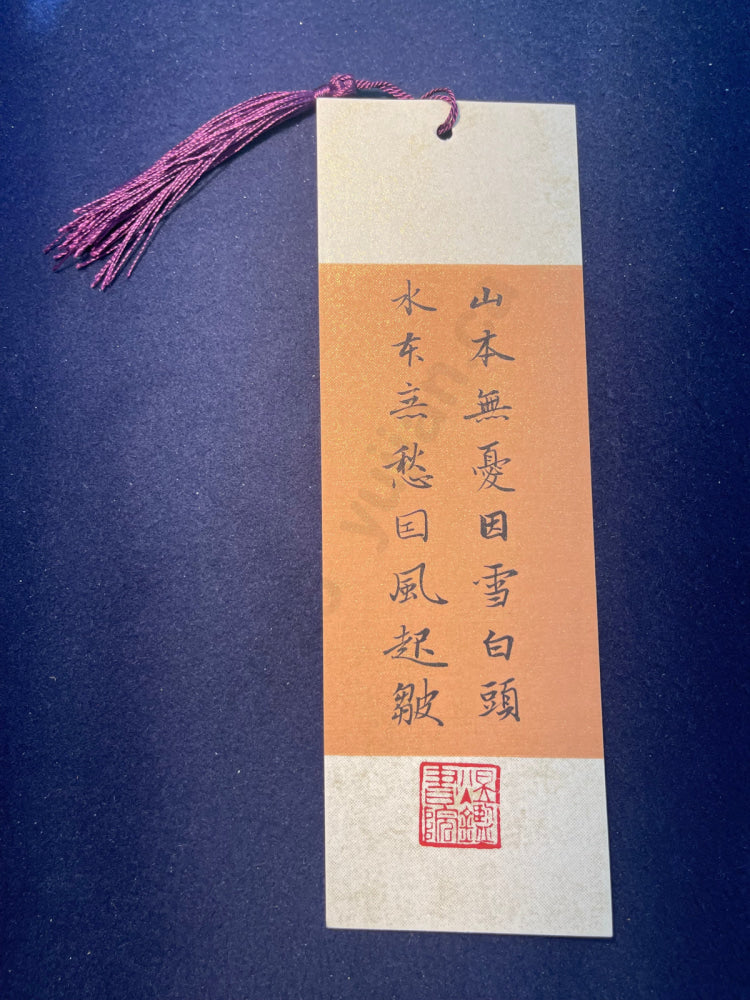 山本無憂因雪白頭
水本無愁囙風起皺
書院